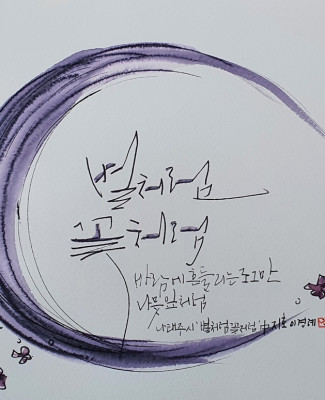 별처럼
꽃처럼
바람에 흔들리는 조그만
나뭇잎처럼
나태주시 '별처럼 꽃처럼' 中 지호 이경례